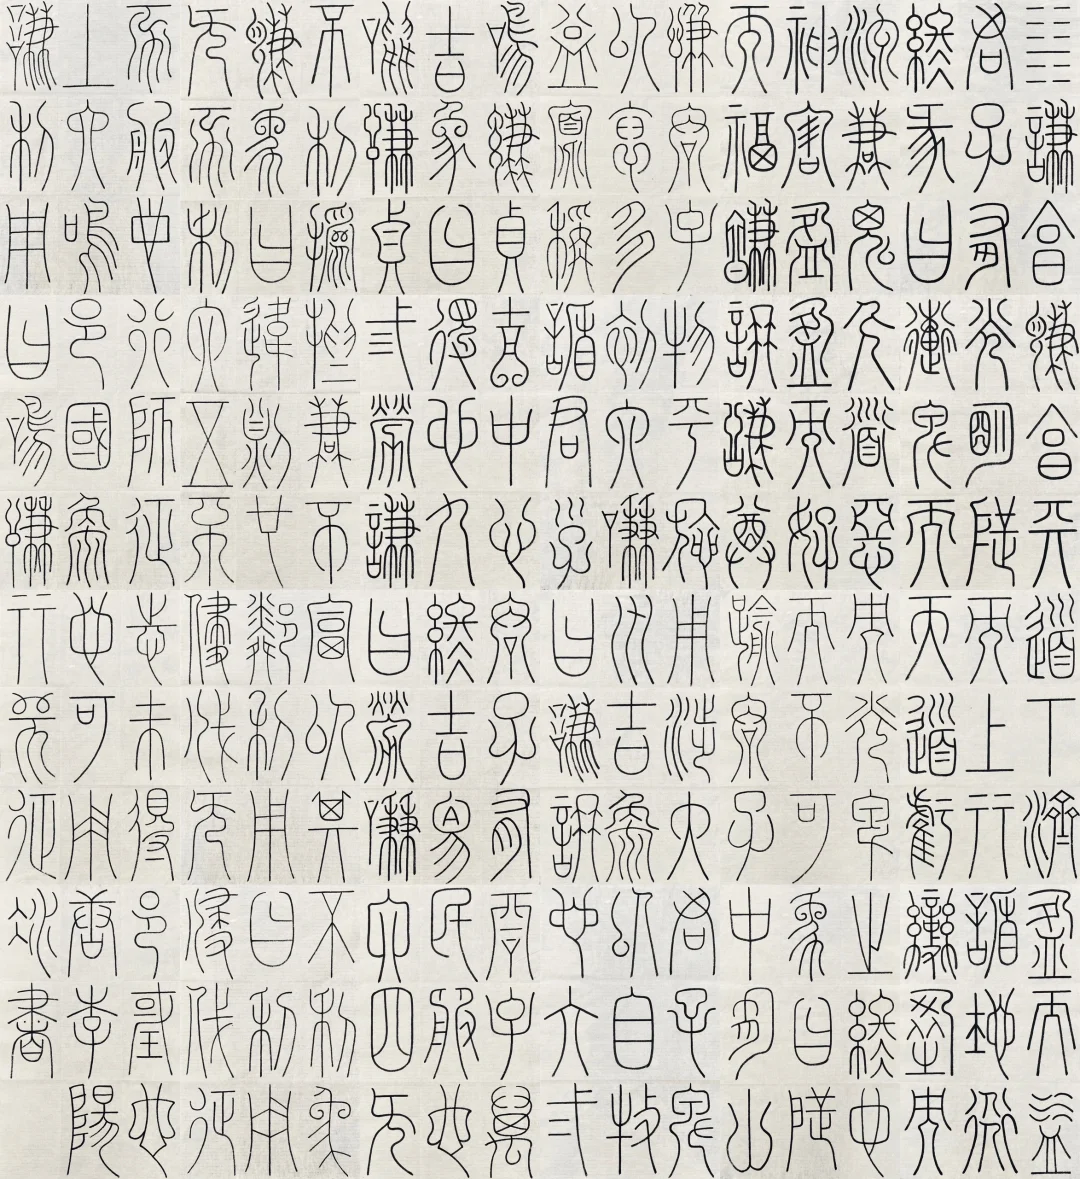 ䷎謙亨謙亨天道下濟盈而益
君子有光明地而上行謙地變
終彖曰道卑而天道虧變盈而
流謙鬼人道惡而光卑之終也
神害盈盈而好而不可象曰地
而福謙謙謙尊踰君子中有山
謙君子物平施用涉大君子卑
以裒多初六謙川吉象以自牧
益寡稱謙君子吉曰謙謙也六二
鳴謙貞吉中心君子有君子萬
吉象曰得也九終吉象民服也
鳴謙貞三勞謙曰勞謙六四无
不利撝撝謙不富以其不利象
謙象曰違則也鄰利用曰利用
无不利六五不侵伐无侵伐征
不服也行師征志未得邑國也
上六鳴邑國象也可用唐李陽
謙利用曰鳴謙行師征冰書